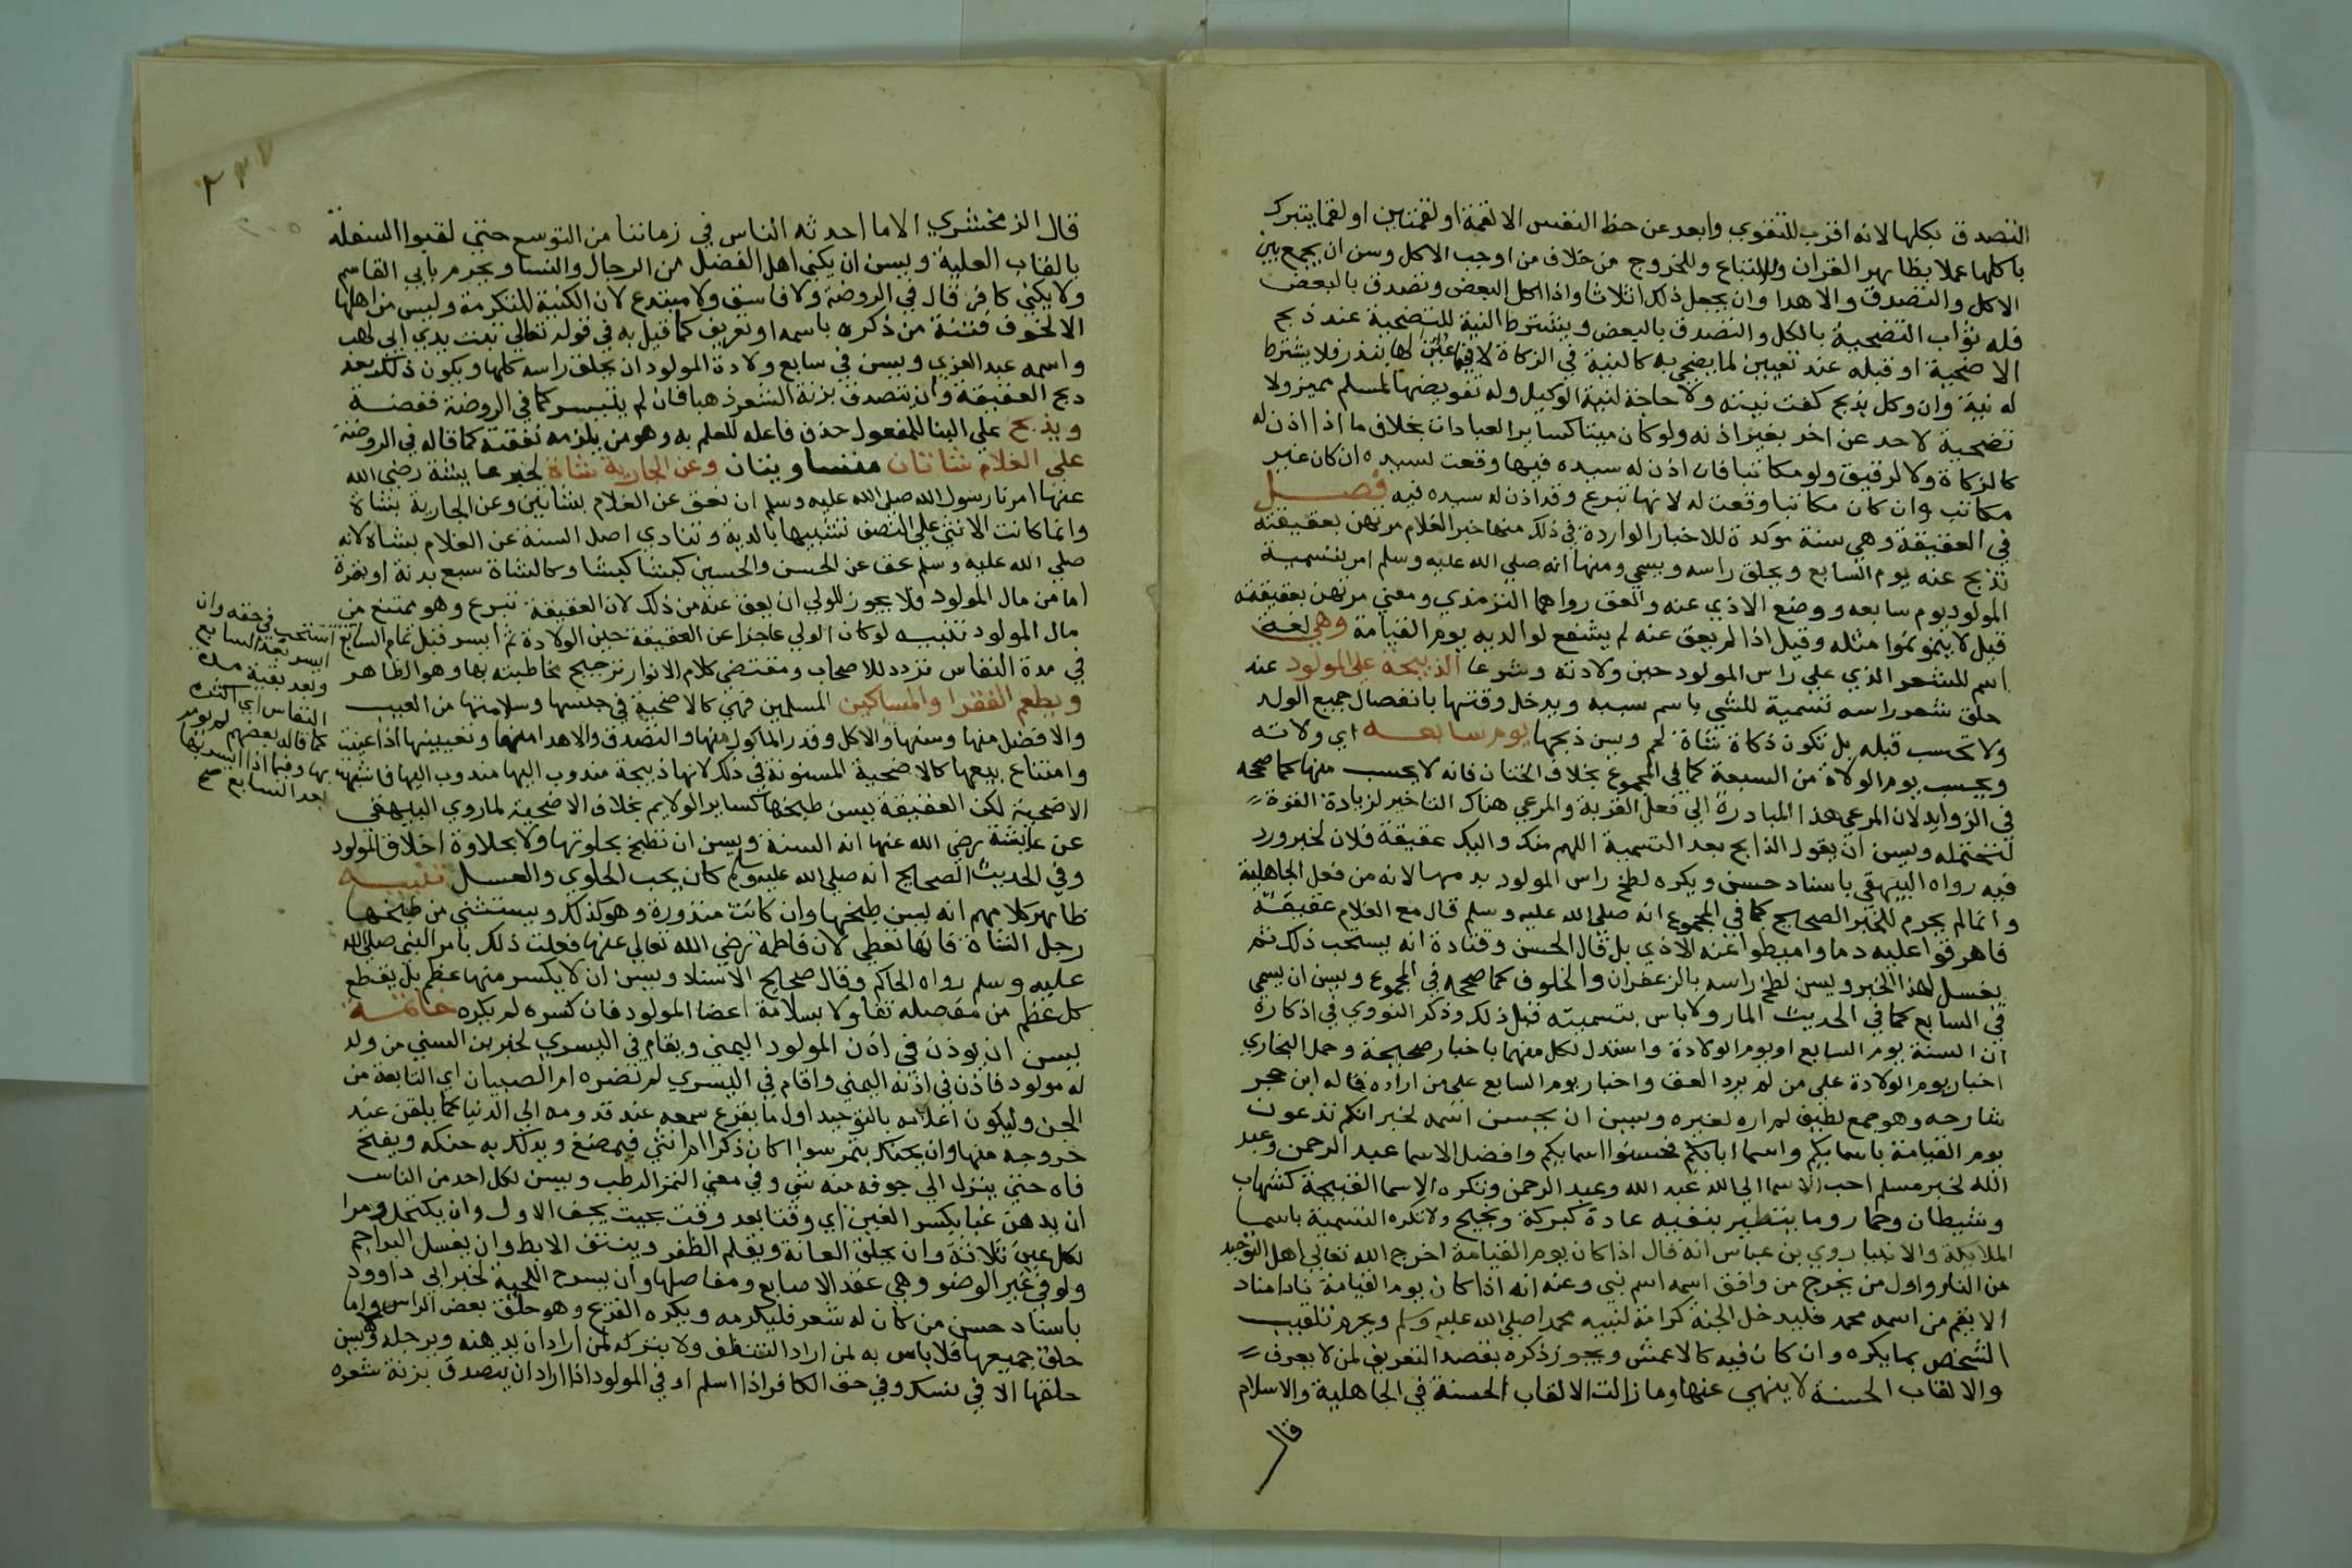 التصدق بكلها لانه اقرب للتقوي وابعد عن حظ النفس الا لقمة او لقمتين او لقما يتبرك
باكلها عملا بظاهر القران وللاتباع وللخروج من خلاف من اوجب الاكل وسن ان يجمع بين
الاكل والتصدق والاهدا وان يجعل ذلك اثلاثا واذا اكل البعض وتصدق بالبعض
فله ثواب التضحية بالكل والتصدق بالبعض ويشترط النية للتضحية عند ذبح
الاضحية او قبله عند تعيين لما يضحي به كالنية في الزكاة لا فيما عين لها بنذر فلا يشترط
له نية وان وكل بذبح كفت نيته ولا حاجة لنية الوكيل وله تفويضها لمسلم مميز ولا
تضحية لاحد عن اخر بغير اذنه ولو كان ميتا كساير العبادات بخلاف ما اذا اذن له
كالزكاة ولا لرقيق ولو مكاتبا فان اذن له سيده فيها وقعت لسيده ان كان غير
مكاتب وان كان مكاتبا وقعت له لانها تبرع وقد اذن له سيده فيه فصل
في العقيقة وهي سنة موكدة للاخبار الواردة في ذلك منها خبر الغلام مرتهن بعقيقته
تذبح عنه يوم السابع ويحلق راسه ويسمي ومنها انه صلي الله عليه وسلم امر بتسمية
المولود يوم سابعه ووضع الاذي عنه والعق رواهما الترمذي ومعني مرتهن بعقيقته
قيل لا ينمو نموا مثله وقيل اذا لم يعق عنه لم يشفع لوالديه يوم القيامة وهي لغة
اسم للشعر الذي علي راس المولود حين ولادته وشرعا الذبيحة علي المولود عند
حلق شعر راسه تسمية للشي باسم سببه ويدخل وقتها بانفصال جميع الولد
ولا تحسب قبله بل تكون ذكاة شاة لحم ويسن ذبحها يوم سابعه اي ولاته
ويحسب يوم الولاة من السبعة كما في المجموع بخلاف الختان فانه لا يحسب منها كما صححه
في الزوايد لان المرعي هذا المبادرة الي فعل القربة والمرعي هناك التاخير لزيادة القوة
لتحتمله ويسن ان يقول الذابح بعد التسمية اللهم منك واليك عقيقة فلان لخبر ورد
فيه رواه البيهقي باسناد حسن ويكره لطخ راس المولود بدمها لانه من فعل الجاهلية
وانما لم يحرم للخبر الصحيح كما في المجموع انه صلي الله عليه وسلم قال مع الغلام عقيقة
فاهرقوا عليه دما واميطوا عنه الاذي بل قال الحسن وقتادة انه يستحب ذلك ثم
يغسل لهذا الخبر ويسن لطخ راسه بالزعفران والخلوف كما صححه في المجموع ويسن ان يسمي
في السابع كما في الحديث المار ولا باس بتسميته قبل ذلك وذكر النووي في اذكاره
ان السنة يوم السابع او يوم الولادة واستدل لكل منهما باخبار صحيحة وحمل البخاري
اخبار يوم الولادة علي من لم يرد العق واخبار يوم السابع علي من اراده قاله ابن حجر
شارحه وهو جمع لطيف لم اره لغيره ويسن ان يحسن اسمه لخبر انكم تدعون
يوم القيامة باسمايكم واسما ابايكم فحسنوا اسمايكم وافضل الاسما عبد الرحمن وعبد
الله لخبر مسلم احب الاسما الي الله عبد الله وعبد الرحمن وتكره الاسما القبيحة كشهاب
وشيطان وحمار وما يتطير بنفيه عادة كبركة ونجيح ولا تكره التسمية باسما
الملايكة والانبيا روي بن عباس انه قال اذا كان يوم القيامة اخرج الله تعالي اهل التوحيد
من النار واول من يخرج من وافق اسمه اسم نبي وعنه انه اذا كان يوم القيامة نادا مناد
الا ليقم من اسمه محمد فليدخل الجنة كرامة لنبيه محمد صلي الله عليه وسلم ويحرم تلقيب
الشخص بما يكره وان كان فيه كالاعمش ويجوز ذكره بقصد التعريف لمن لا يعرف
والالقاب الحسنة لا ينهي عنها وما زالت الالقاب الحسنة في الجاهلية والاسلام
قال
٢٣٧
٢٠٥
قال الزمخشري الا ما احدثه الناس في زماننا من التوسع حتي لقبوا السفلة
بالقاب العلية ويسن ان يكني اهل الفضل من الرجال والنسا ويحرم بابي القاسم
ولا يكني كافر قال في الروضة ولا فاسق ولا مبتدع لان الكنية للتكرمة وليس من اهلها
الا لخوف فتنة من ذكره باسمه او تعريف كما قيل به في قوله تعالي تبت يدي ابي لهب
واسمه عبد العزي ويسن في سابع ولادة المولود ان يحلق راسه كلها ويكون ذلك بعد
دبح العقيقة وان يتصدق بزنة الشعر ذهبا فان لم يتيسر كما في الروضة ففضة
ويذبح علي البنا للمفعول حذف فاعله للعلم به وهو من يلزمه نفقته كما قاله في الروضة
علي الغلام شاتان متساويتان وعن الجارية شاة لخبر عايشة رضي الله
عنها امرنا رسول الله صلي الله عليه وسلم ان نعق عن الغلام بشاتين وعن الجارية بشاة
وانما كانت الانثي علي النصف تشبيها بالدية وتتادي اصل السنة عن الغلام بشاة لانه
صلي الله عليه وسلم عق عن الحسن والحسين كبشا كبشا وكالشاة سبع بدنة او بقرة
اما من مال المولود فلا يجوز للولي ان يعق عنه من ذلك لان العقيقة تبرع وهو ممتنع من
مال المولود تنبيه لو كان الولي عاجزا عن العقيقة حين الولادة ثم ايسر قبل تمام السابع
استحب في حقه وان
ايسر بعد السابع
وبعد بقية مدة
النفاس اي اكثره
كما قاله بعضهم لم يومر
بها وفيما اذا ايسر بها
بعد السابع صح
في مدة النفاس تردد للاصحاب ومقتضي كلام الانوار ترجيح مخاطبته بها وهو الظاهر
ويطعم الفقرا والمساكين المسلمين فهي كالاضحية في جنسها وسلامتها من العيب
والافضل منها وسنها والاكل وقدر الماكول منها والتصدق والاهدا منها وتعيينها اذا عينت
وامتناع بيعها كالاضحية المسنونة في ذلك لانها ذبيحة مندوب اليها فاشبهت
الاضحية لكن العقيقة يسن طبخها كساير الولايم بخلاف الاضحية لما روي البيهقي
عن عايشة رضي الله عنها انه السنة ويسن ان تطبخ بحلوتها ولا بحلاوة اخلاق المولود
وفي الحديث الصحيح انه صلي الله عليه وسلم كان يحب الحلوي والعسل تنبيه
ظاهر كلامهم انه يسن طبخها وان كانت منذورة وهو كذلك ويستثني من طبخها
رجل الشاة فانها تعطي لان فاطمة رضي الله تعالي عنها فعلت ذلك بامر النبي صلي الله
عليه وسلم رواه الحاكم وقال صحيح الاسناد ويسن ان لا يكسر منها عظم بل يقطع
كل عظم من مفصله تفاولا بسلامة اعضا المولود فان كسره لم يكره خاتمة
يسن ان يوذن في اذن المولود اليمني ويقام في اليسري لخبر بن السني من ولد
له مولود فاذن في اذنه اليمني واقام في اليسري لم تضره ام الصبيان اي التابعة من
الجن وليكون اعلامه بالتوحيد اول ما يقرع سمعه عند قدومه الي الدنيا كما يلقن عند
خروجه منها وان يحنك بتمر سوا اكان ذكرا ام انثي فيمضغ ويدلك به حنكه ويفتح
فاه حتي ينزل الي جوفه منه شي وفي معني التمر الرطب ويسن لكل احد من الناس
ان يدهن غبا بكسر الغين اي وقتا بعد وقت بحيث يجف الاول وان يكتحل وترا
لكل عين ثلاثة وان يحلق العانة ويقلم الظفر وينتف الابط وان يغسل البراجم
ولو في غير الوضو وهي عقد الاصابع ومفاصلها وان يسرح اللحية لخبر ابي داوود
باسناد حسن من كان له شعر فليكرمه ويكره القزع وهو حلق بعض الراس واما
حلق جميعها فلا باس به لمن اراد التنظف ولا بتركه لمن اراد ان يدهنه ويرجله ويسن
حلقها الا في نسك وفي حق الكافر اذا اسلم او في المولود اذا اراد ان يتصدق بزنة شعره